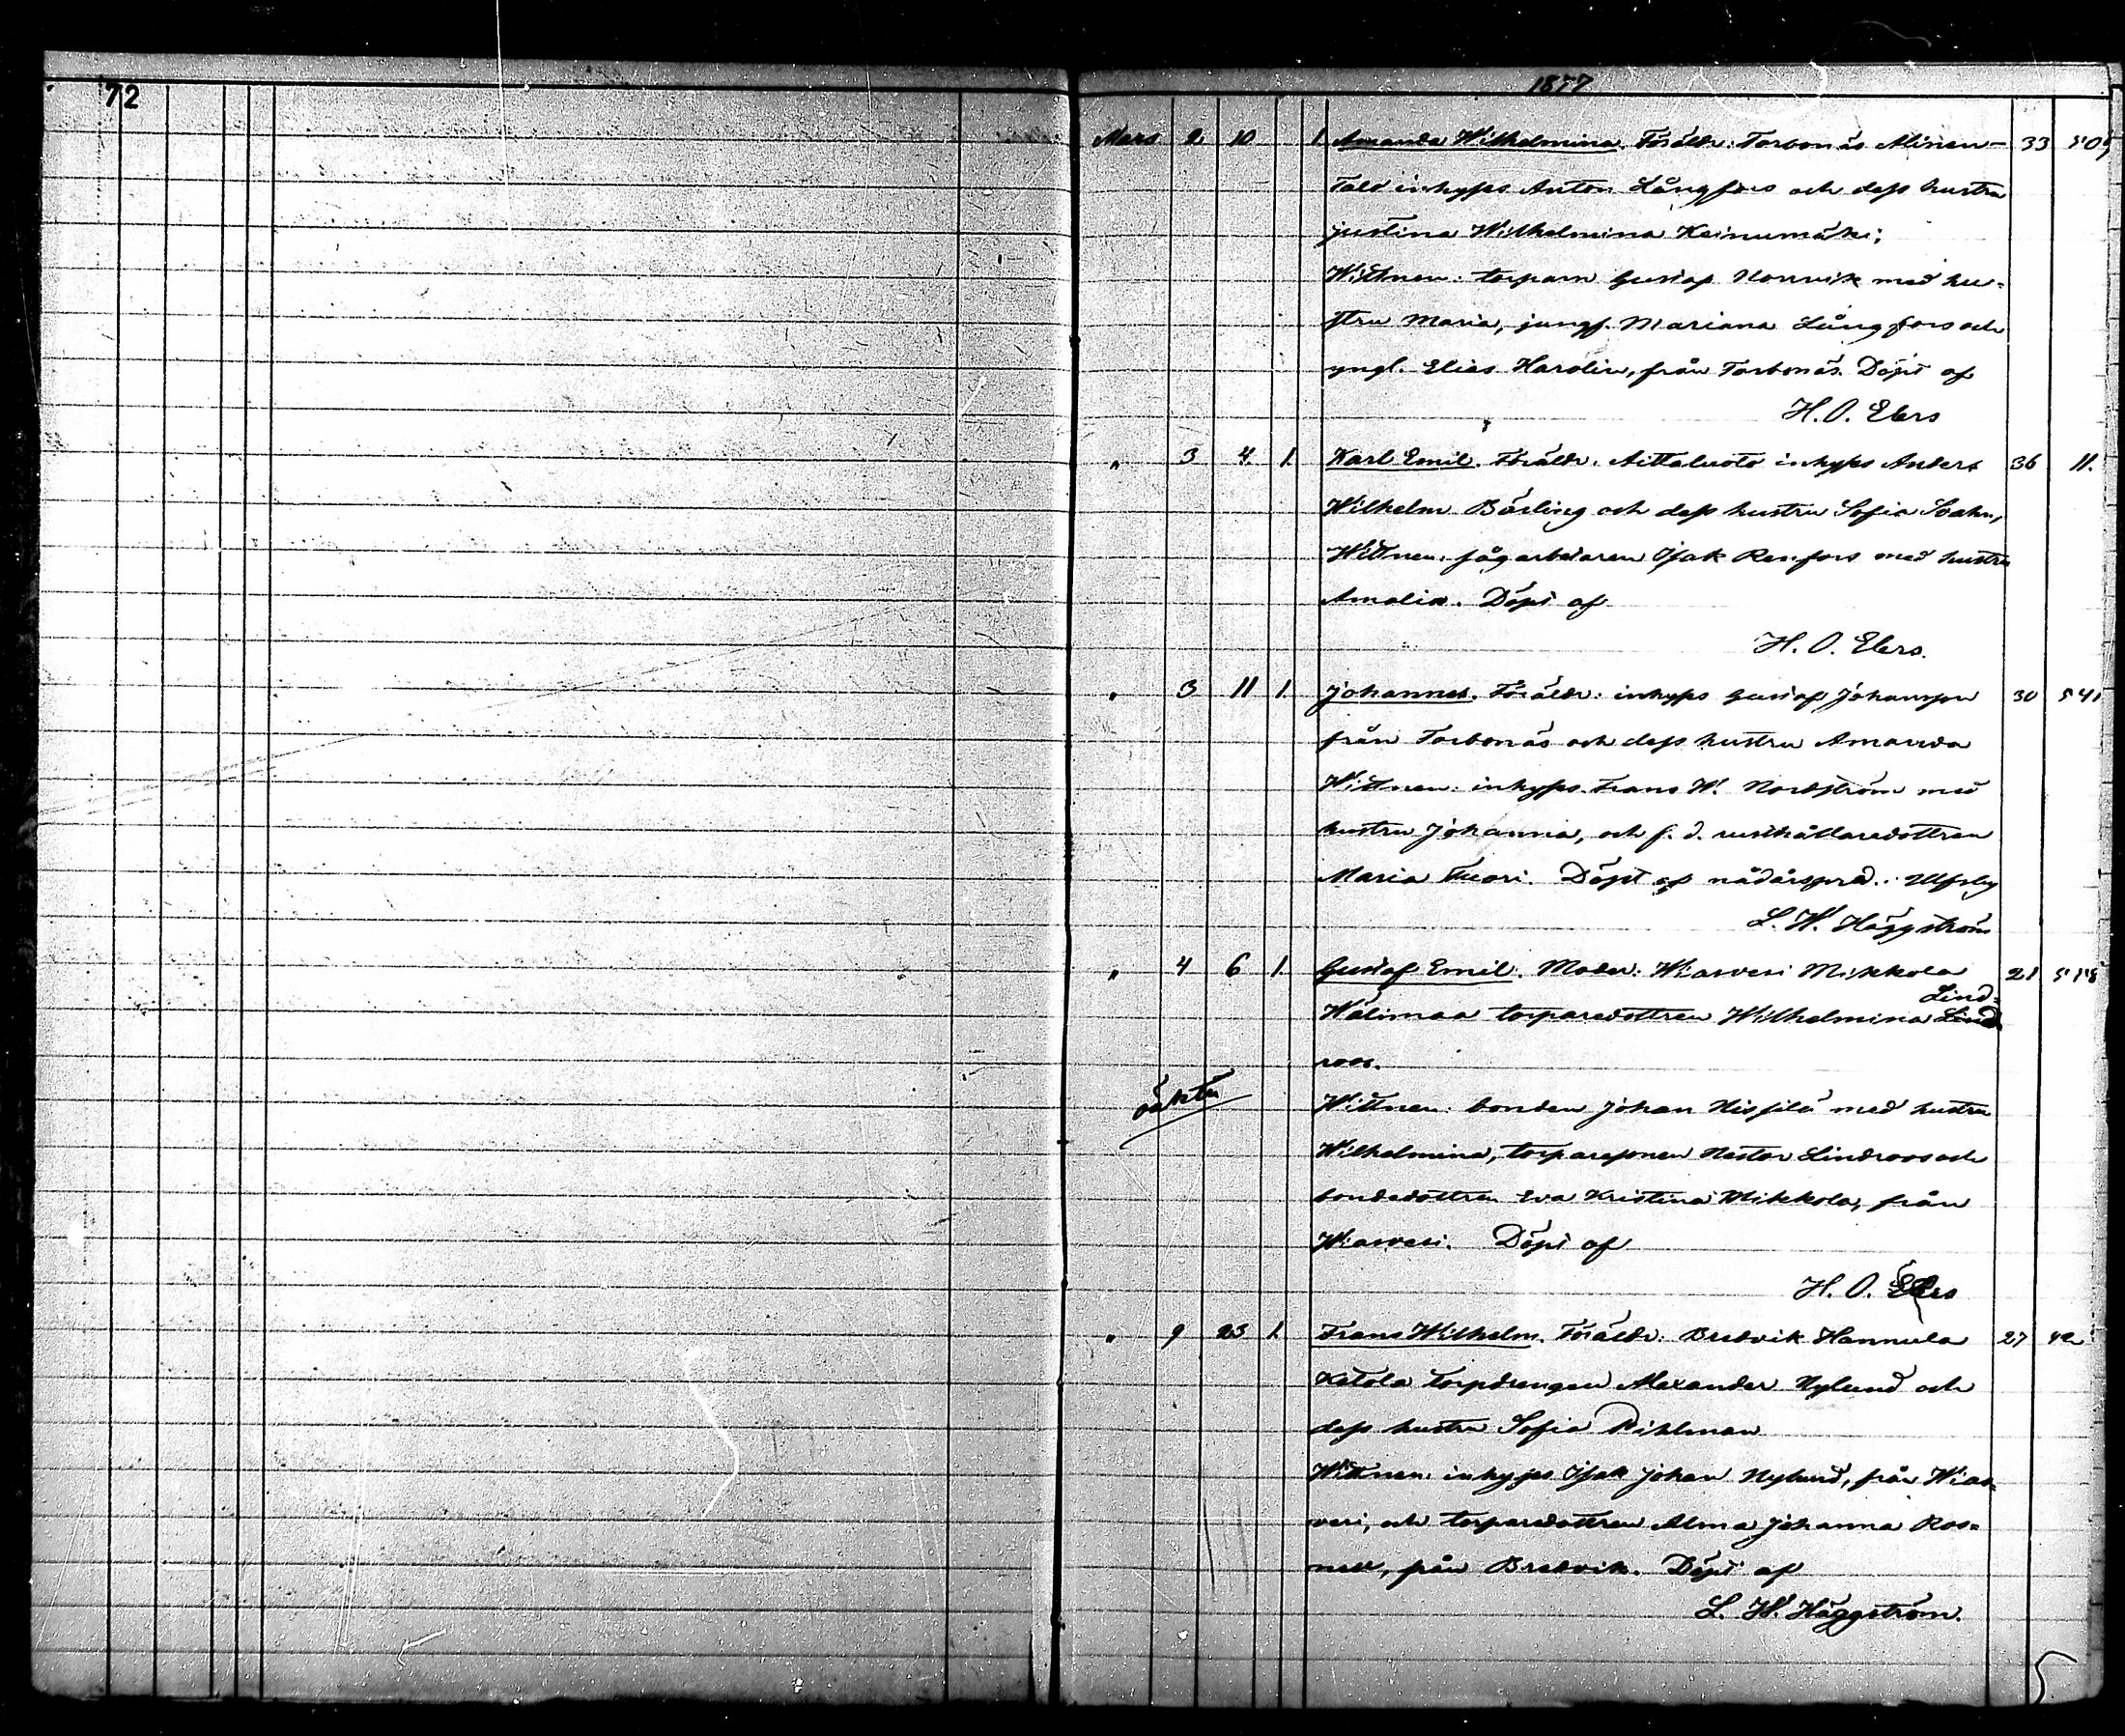 72
1877
Mars 2 10 1 Amanda Wilhelmina. Föräldr: Torbonäs Alinen- 33 509
tald inhyses Anton Långfors och dess hustru
Justina Wilhelmina Heinumäki;
Wittnen: torparn Gustaf Norrvik med hu-
stru Maria, jungf. Mariana Långfors och
yngl. Elias Harolin, från Torbonäs. Döpt af
H. O. Elers
" 3 4 1. Karl Emil. Föräldr. Aittaluoto inhyses Anders 36 11.
Wilhelm Bärling och dess hustru Sofia Svahn,
Wittnen: sågarbetaren Isak Renfors med hustru
Amalia. Döpt af
H. O. Elers.
" 3 11 1. Johannes. Föräldr: inhyses Gustaf Johansson 30 541
från Torbonäs och dess hustru Amanda
Wittnen: inhyses Frans W. Nordström med
hustru Johanna, och f. d. rusthållaredottren
Maria Tuori. Döpt af nådårspred. i Ulfsby
L. W. Häggström
" 4 6 1. Gustaf Emil. Moder: Wiasvesi Mikkola 21 518
Lind-
Wälimaa torparedottren Wilhelmina Lind
roos.
oäkta
Wittnen: bonden Johan Hissilä med hustru
Wilhelmina, torparesonen Nestor Lindroos och
bondedottren Eva Kristina Mikkola, från
Wiasvesi. Döpt af
H. O. Elers
" 9 23 1. Frans Wilhelm. Föräldr: Bredvik Hannula 27 42
Ketola torpdrengen Alexander Nylund och
dess hustru Sofia Pihlman
Wittnen: inhyses Isak Johan Nylund, från Wias-
vesi, och torparedottren Alma Johanna Ros-
nell, från Bredvik. Döpt af
L. W. Häggström.